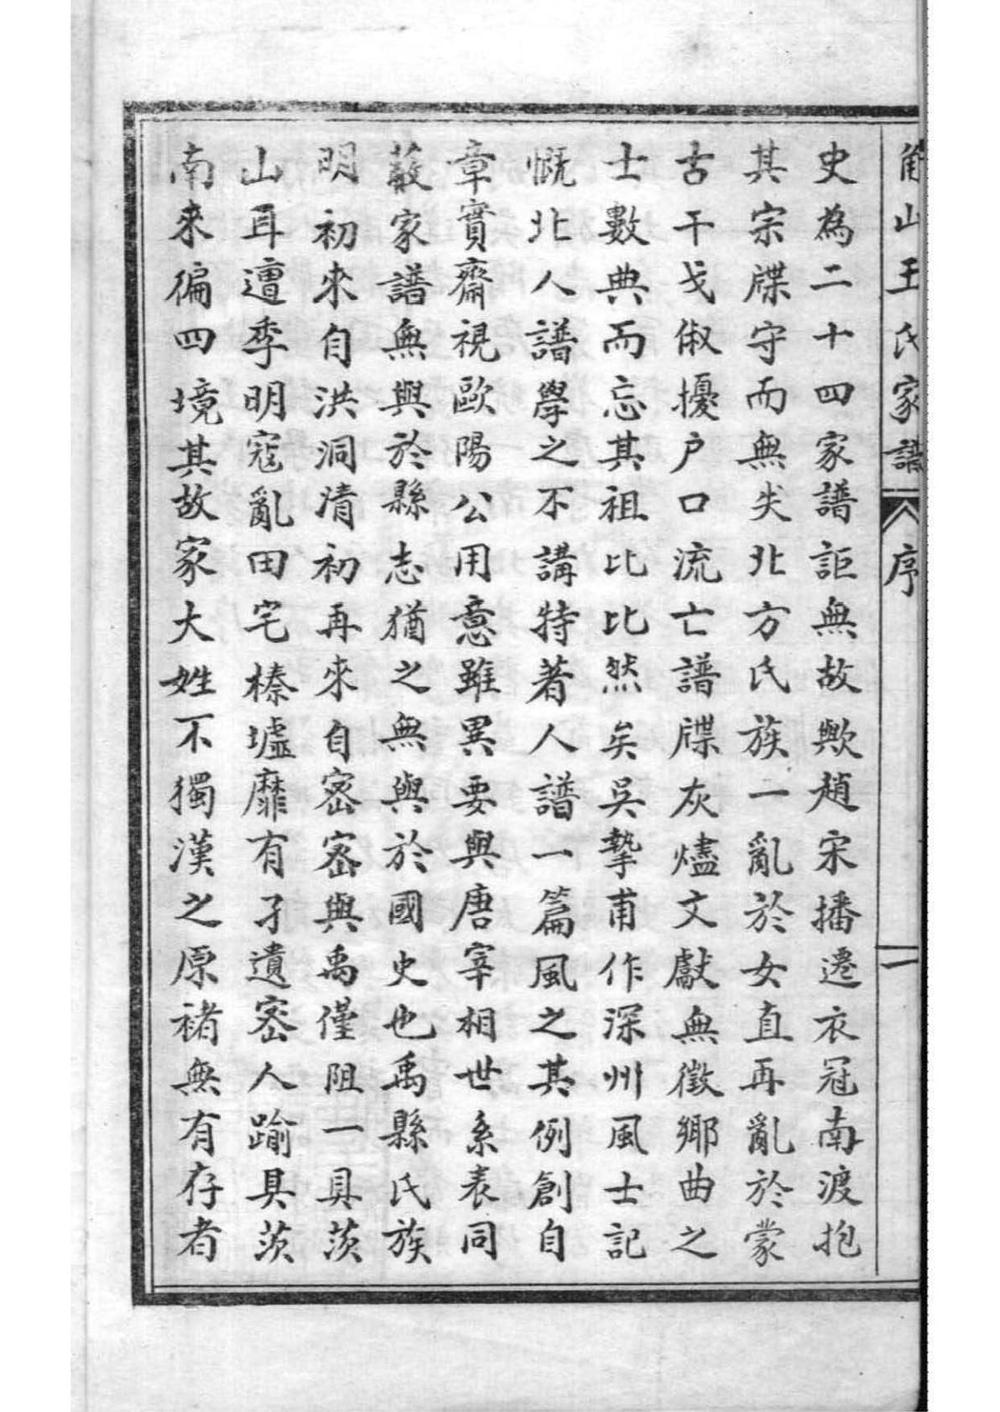 角山王氏家譜 序 一
史為二十四家譜詎無故歟趙宋播遷衣冠南渡抱
其宗牒守而無失北方氏族一亂於女直再亂於蒙
古干戈俶擾户口流亡譜牒灰燼文獻無徵鄉曲之
士數典而忘其祖比比然矣吳摯甫作深州風土記
慨北人譜學之不講特著人譜一篇風之其例創自
章實齋視歐陽公用意雖異要與唐宰相世系表同
蔽家譜無與於縣志猶之無與於國史也禹縣氏族
明初來自洪洞清初再來自密密與禹僅阻一具茨
山耳遭季明寇亂田宅榛墟靡有孑遺密人踰具茨
南來徧四境其故家大姓不獨漢之原褚無有存者